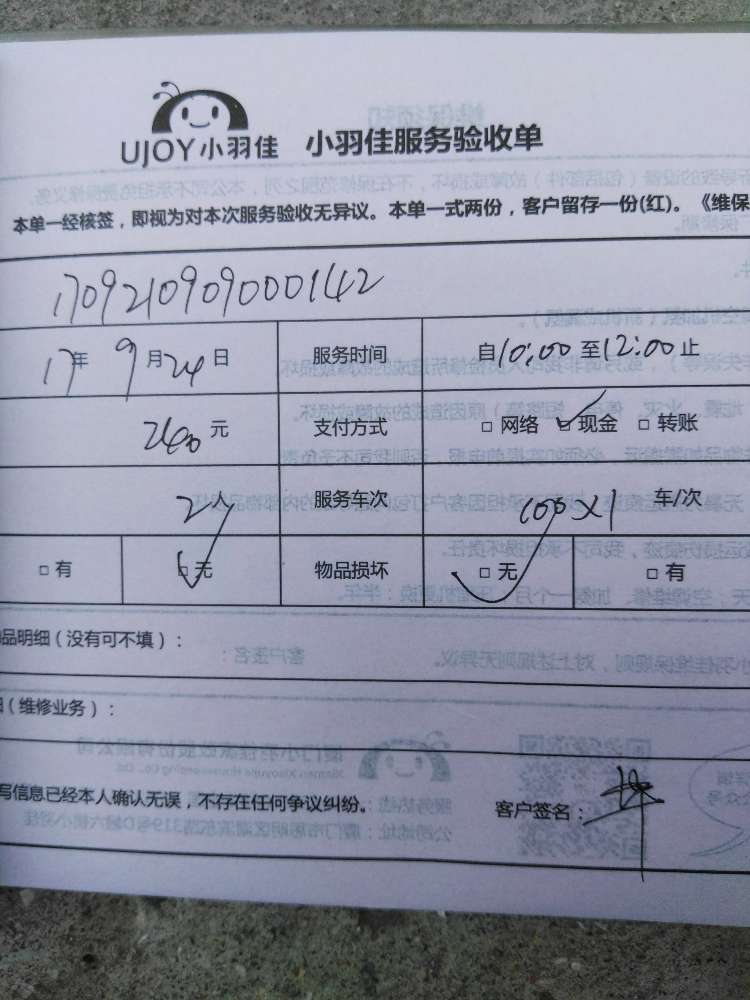 UJOY小羽佳 小羽佳服务验收单
本单一经核签，即视为对本次服务验收无异议。本单一式两份，客户留存一份(红)。《维保
17092109090000142
17年 9月24日 服务时间 自10:00至12:00止
260元 支付方式 □ 网络 □ 现金 □ 转账
2 服务车次 车/次
□ 有 □ 无 物品损坏 □ 无 □ 有
品明细（没有可不填）：
（维修业务）：
写信息已经本人确认无误，不存在任何争议纠纷。 客户签名：